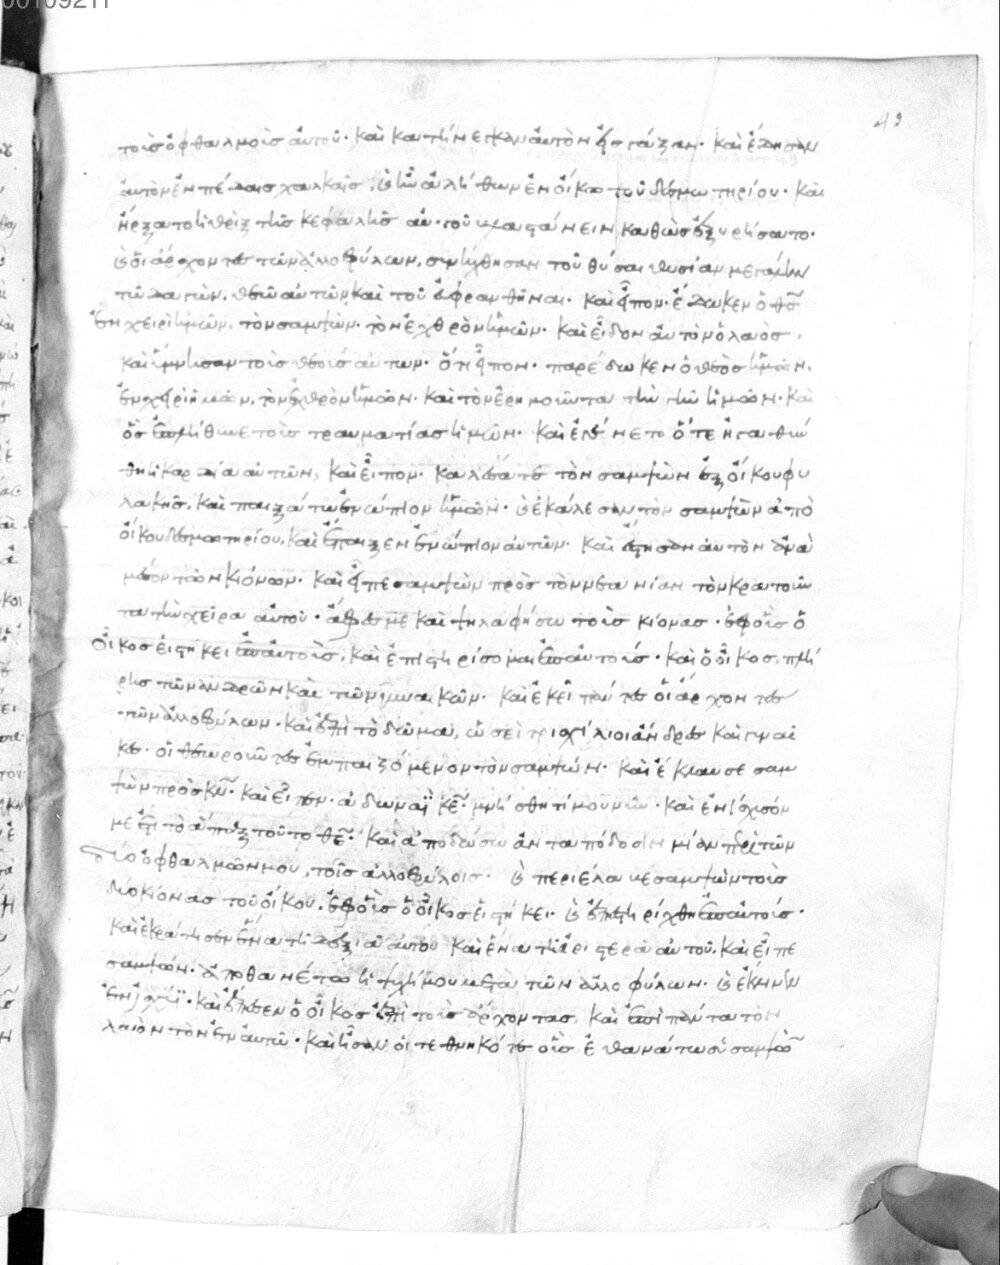 00109211
43
τοὺς ὀφθαλμοὺς αὐτοῦ· καὶ κατήνεγκαν αὐτὸν εἰς γάζαν· καὶ ἔδησαν
αὐτὸν ἐν πέδαις χαλκαῖς, καὶ ἦν ἀλήθων ἐν οἴκω τοῦ δεσμωτηρίου· καὶ
ἤρξατο ἡ θρὶξ τῆς κεφαλῆς αὐ· τοῦ βλαστάνειν καθὼς ἐξυρήσατο·
καὶ οἱ ἄρχοντες τῶν ἀλλοφύλων, συνήχθησαν τοῦ θύσαι θυσίαν μεγάλην
τῶ δαγὼν, θεῶ αὐτῶν καὶ τοῦ εὐφρανθῆναι· καὶ εἶπον· ἔδωκεν ὁ θς
ἐν χειρὶ ἡμῶν, τὸν σαμψὼν· τὸν ἐχθρὸν ἡμῶν· καὶ εἶδον αὐτὸν ὁ λαὸς,
καὶ ὕμνησαν τοὺς θεοὺς αὐτων· ὅτι εἶπον· παρέδωκεν ὁ θεὸς ἡμῶν,
ἐν χειρὶ ἡμῶν, τὸν ἐχθρὸν ἡμῶν· καὶ τὸν ἐρημοῦντα τὴν γῆν ἡμῶν· καὶ
ὃς ἐπλήθυνε τοὺς τραυματίας ἡμῶν· καὶ ἐγένετο ὅτε ἠγαθύν
θη ἡ καρδία αὐτῶν, καὶ εἶπον· καλέσατε τὸν σαμψὼν ἐξ οἴκου φυ
λακῆς, καὶ παιξάτω ἐνώπιον ἡμῶν· καὶ ἐκάλεσαν τὸν σαμψῶν ἀπὸ
οἴκου δεσμωτηρίου, καὶ ἔπαιξεν ἐνώπιον αὐτῶν· καὶ ἔστησαν αὐτὸν ἀνὰ
μέσον τῶν κιόνων· καὶ εἶπε σαμψὼν πρὸς τὸν νεανίαν τὸν κρατοῦν
τα τὴν χεῖρα αὐτοῦ· ἄφες με καὶ ψηλαφήσω τοὺς κίονας· ἐφ οἷς ὁ
οἶκος εἱστήκει ἐπ αὐτοὺς, καὶ ἐπιστηρίσομαι ἐπ αὐτούς· καὶ ὁ οἶκος, πλή
ρης τῶν ἀνδρῶν καὶ τῶν γυναικῶν· καὶ ἐκεῖ πάντες οἱ ἄρχοντες
τῶν ἀλλοφύλων· καὶ ἐπὶ τὸ δῶμα, ὡσεὶ τρισχίλιοι ἄνδρες καὶ γυναῖ
κες· οἱ θεωροῦντες ἐμπαιζόμενον τὸν σαμψών· καὶ ἔκλαυσε σαμ
ψὼν πρὸς κν· καὶ εἶπεν· ἀδωναῒ κε· μνήσθητί μου νῦν· καὶ ἐνίσχυσόν
με ἔτι τὸ ἅπαξ τοῦτο θε· καὶ ἀποδώσω ἀνταπόδοσιν μίαν περὶ τῶν
δύο ὀφθαλμῶν μου, τοῖς ἀλλοφύλοις· καὶ περιέλαβε σαμψὼν τοὺς
δύο κίονας τοῦ οἴκου, ἐφ οἷς ὁ οἶκος εἱστήκει· καὶ ἐπεστηρίχθη ἐπ αὐτούς·
καὶ ἐκράτησεν ἕνα τῆ δεξιᾶ αὐτοῦ καὶ ἕνα τῆ ἀριστερᾶ αὐτοῦ. καὶ εἶπε
σαμψών· ἀποθανέτω ἡ ψυχή μου μετὰ τῶν ἀλλοφύλων· καὶ ἔκλινεν
ἐν ἰσχύϊ· καὶ ἔπεσεν ὁ οἶκος ἐπὶ τοὺς ἄρχοντας, καὶ ἐπὶ πάντα τὸν
λαὸν τὸν ἐν αὐτῶ· καὶ ἦσαν οἱ τεθνηκότες οὓς ἐθανάτωσε σαμψὼν